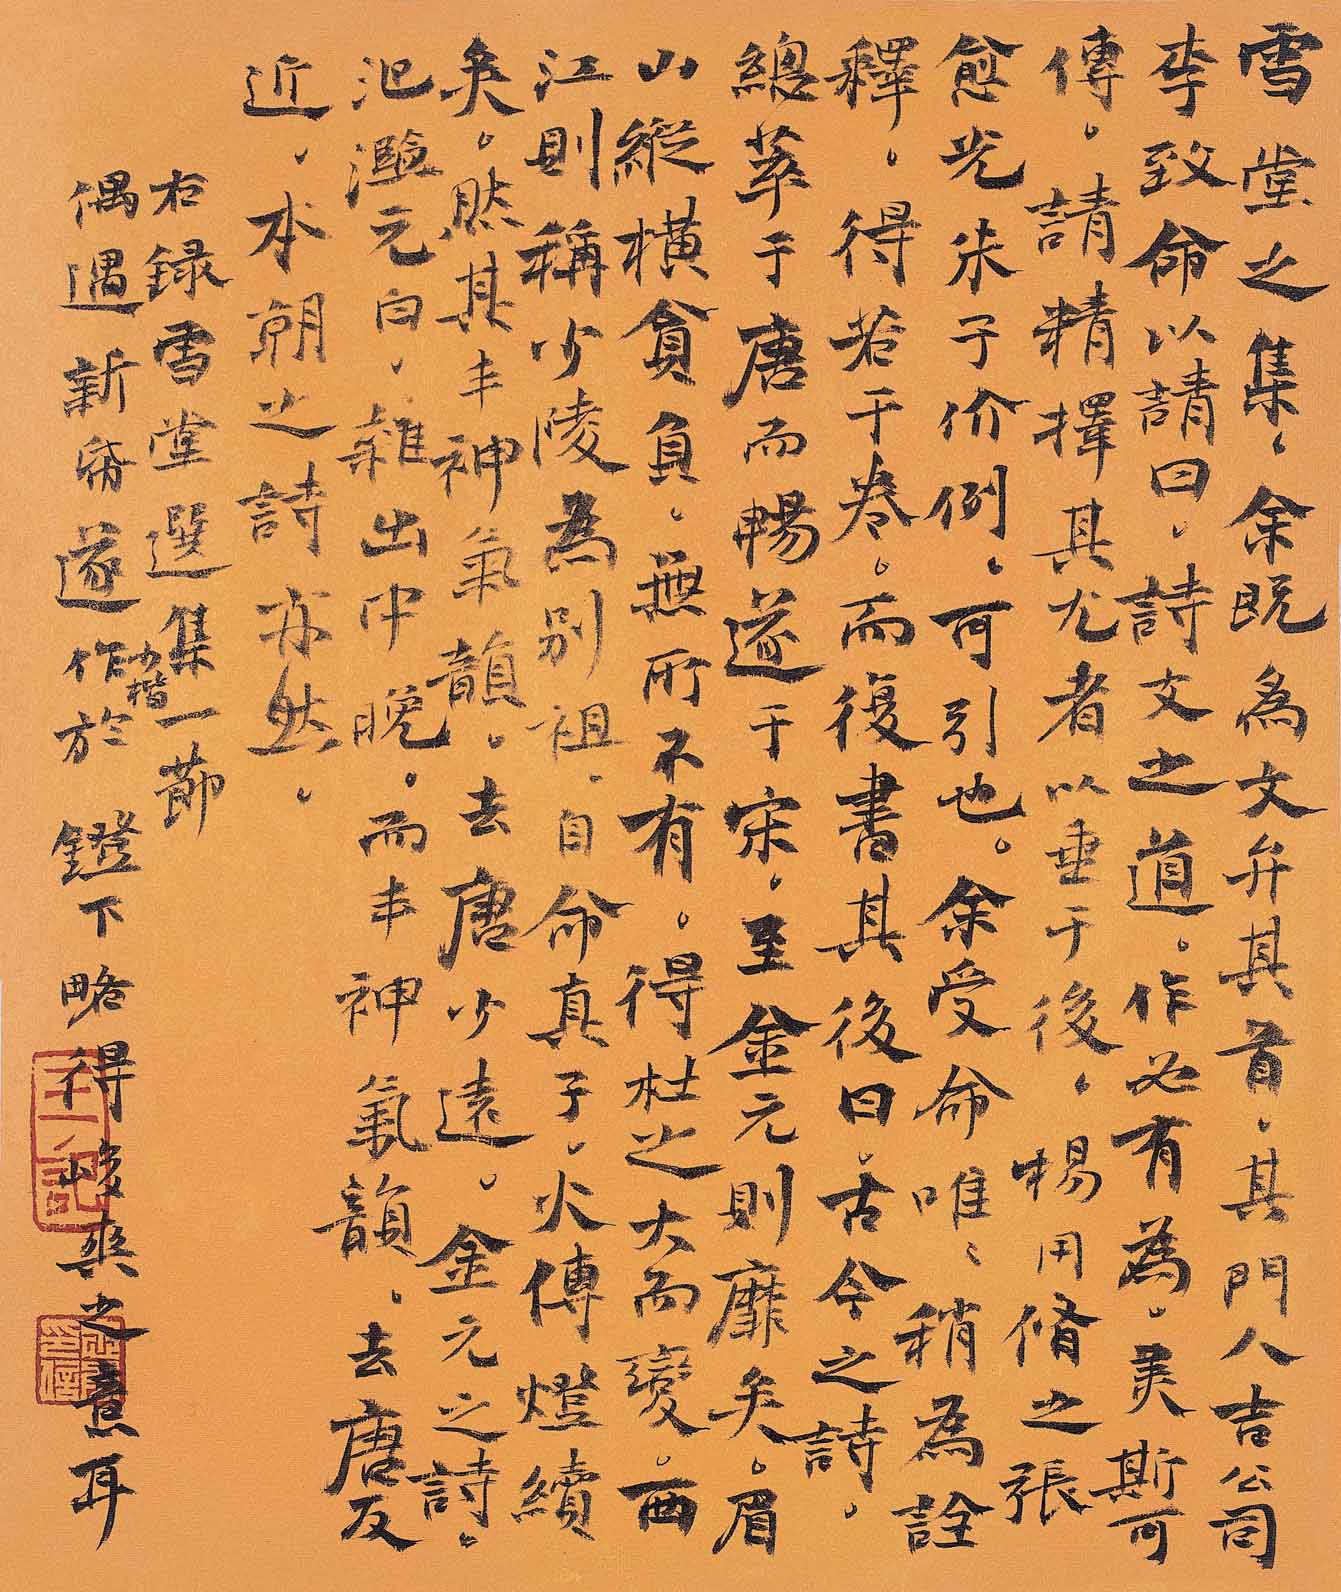 雪堂之集、余既為文弁其首。其門人吉公司
李致命以請曰。詩文之道。作必有為。美斯可
傳。請精擇其尤者以垂于後、楊用脩之張
愈光朱子价例、可引也。余受命唯、稍為詮
釋。得若干卷。而復書其後曰。古今之詩。
總萃于唐而暢遂于宋。至金元則靡矣。眉
山縱橫貪負。無所不有。得杜之大而變。西
江則稱少陵為別祖。自命真子。火傳燈續
矣。然其丰神氣韻。去唐少遠。金元之詩。
汜濫元白、雜出中晚。而丰神氣韻。去唐反
近。本朝之詩亦然。
右録雪堂選集一節
小楷
偶遇新䇲遂作於鐙下略得峻爽之意耳